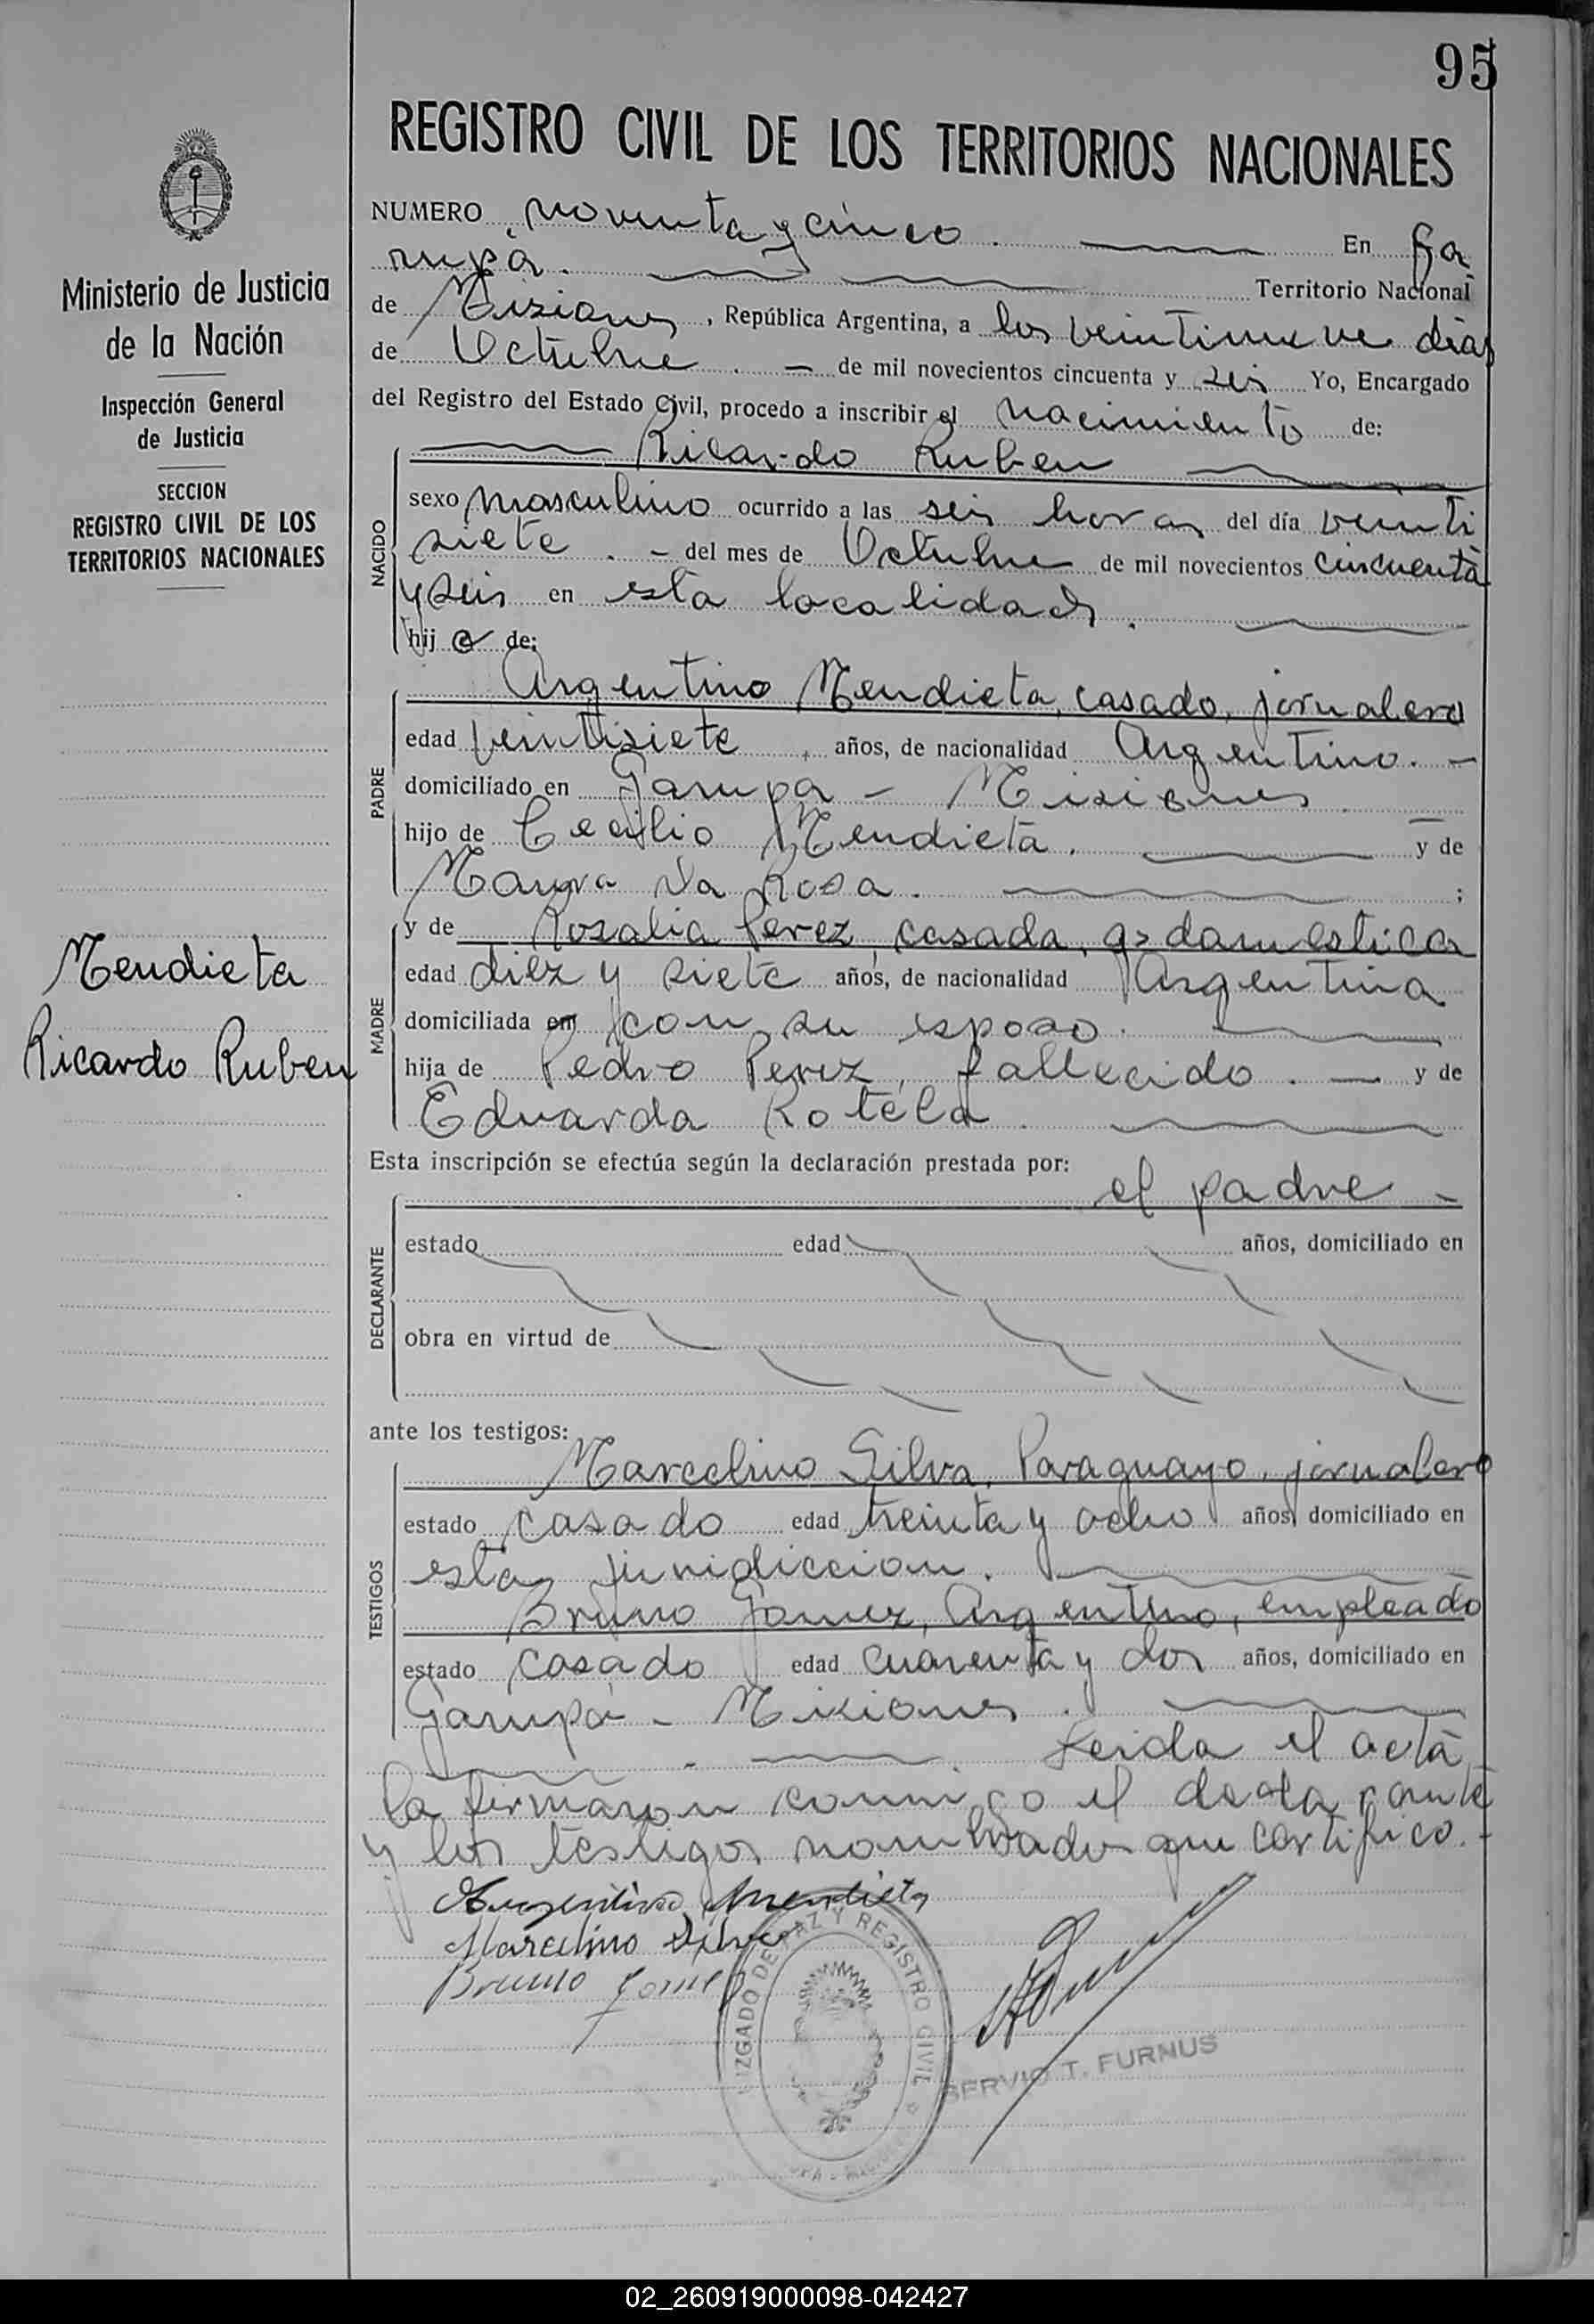 95
REGISTRO CIVIL DE LOS TERRITORIOS NACIONALES
Ministerio de Justicia
de la Nación
Inspección General
de Justicia
SECCION
REGISTRO CIVIL DE LOS
TERRITORIOS NACIONALES
Mendieta
Ricardo Ruben
NUMERO noventa y cinco. En Ga
rupá. Territorio Nacional
de Misiones, República Argentina, a los veintinueve dias
de Octubre. - de mil novecientos cincuenta y seis Yo, Encargado
del Registro del Estado Civil, procedo a inscribir el nacimiento de:
Ricardo Ruben
NACIDO
sexo masculino ocurrido a las seis horas del día veinti
siete. - del mes de Octubre de mil novecientos cincuenta
y seis en esta localidad.
hijo de:
PADRE
Argentino Mendieta, casado, jornalero
edad veintisiete, años, de nacionalidad Argentino. -
domiciliado en Garupa - Misiones
hijo de Cecilio Mendieta. y de
Maura Da Rosa. ;
MADRE
y de Rosalia Perez, casada, q> domestica
edad diez y siete años, de nacionalidad Argentina
domiciliada en con su esposo.
hija de Pedro Perez, fallecido. - y de
Eduarda Rotela.
Esta inscripción se efectúa según la declaración prestada por:
el padre -
DECLARANTE
estado edad años, domiciliado en
obra en virtud de
ante los testigos:
TESTIGOS
Marcelino Silva, Paraguayo, jornalero
estado casado edad treinta y ocho años, domiciliado en
esta juridiccion.
Bruno Gomez, Argentino, empleado
estado casado edad cuarenta y dos años, domiciliado en
Garupá - Misiones.
Leida el acta
la firmaron conmigo el declarante
y los testigos nombrados que certifico. -
Argentino Mendieta
Marcelino Silva
Bruno Gomez
JUZGADO DE PAZ Y REGISTRO CIVIL
SERVIO T. FURNUS
02_260919000098-042427